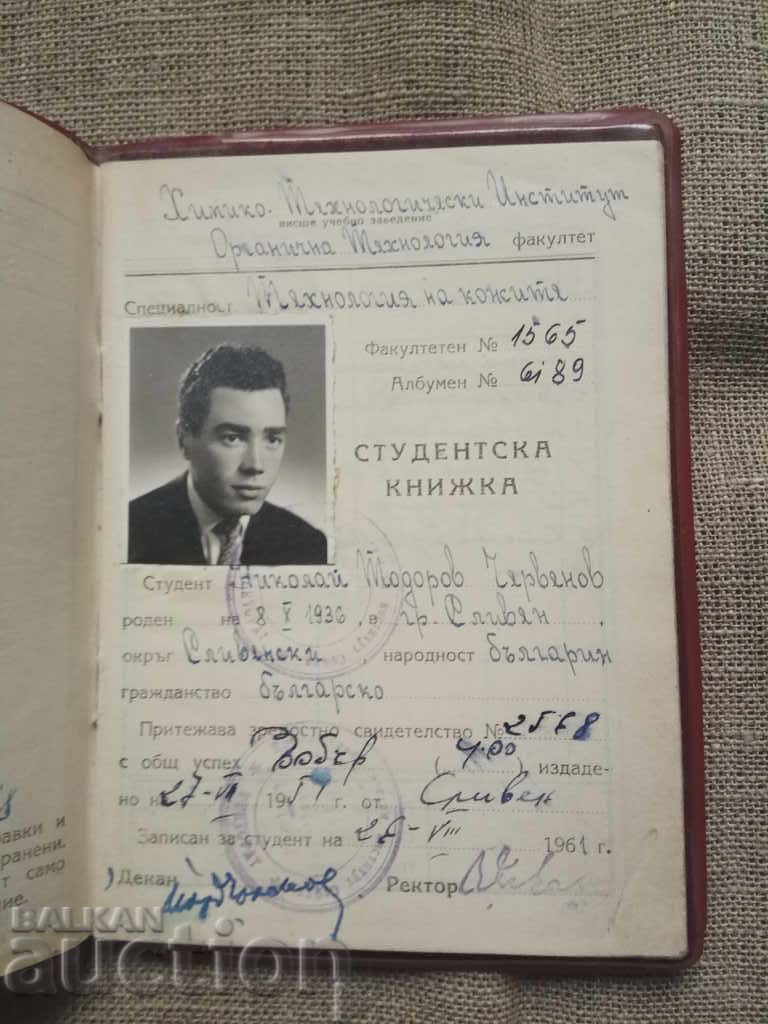 Химико. Технологически Институт
висше учебно заведение
Органична Технология факултет
Специалност Технология на кожите
Факултетен № 1565
Албумен № 6189
СТУДЕНТСКА
КНИЖКА
Студент Николай Тодоров Червенов
роден на 8 X 1936, в гр. Сливен,
окръг Сливенски, народност българин
гражданство българско
Притежава зрелостно свидетелство № 2568
с общ успех Добър (4.00) издаде-
но на 27-VI 19 г. от Сливен
Записан за студент на VIII 1961 г.
Декан Ректор
авки и
ранени.
т само
ие.
BALKAN
auction